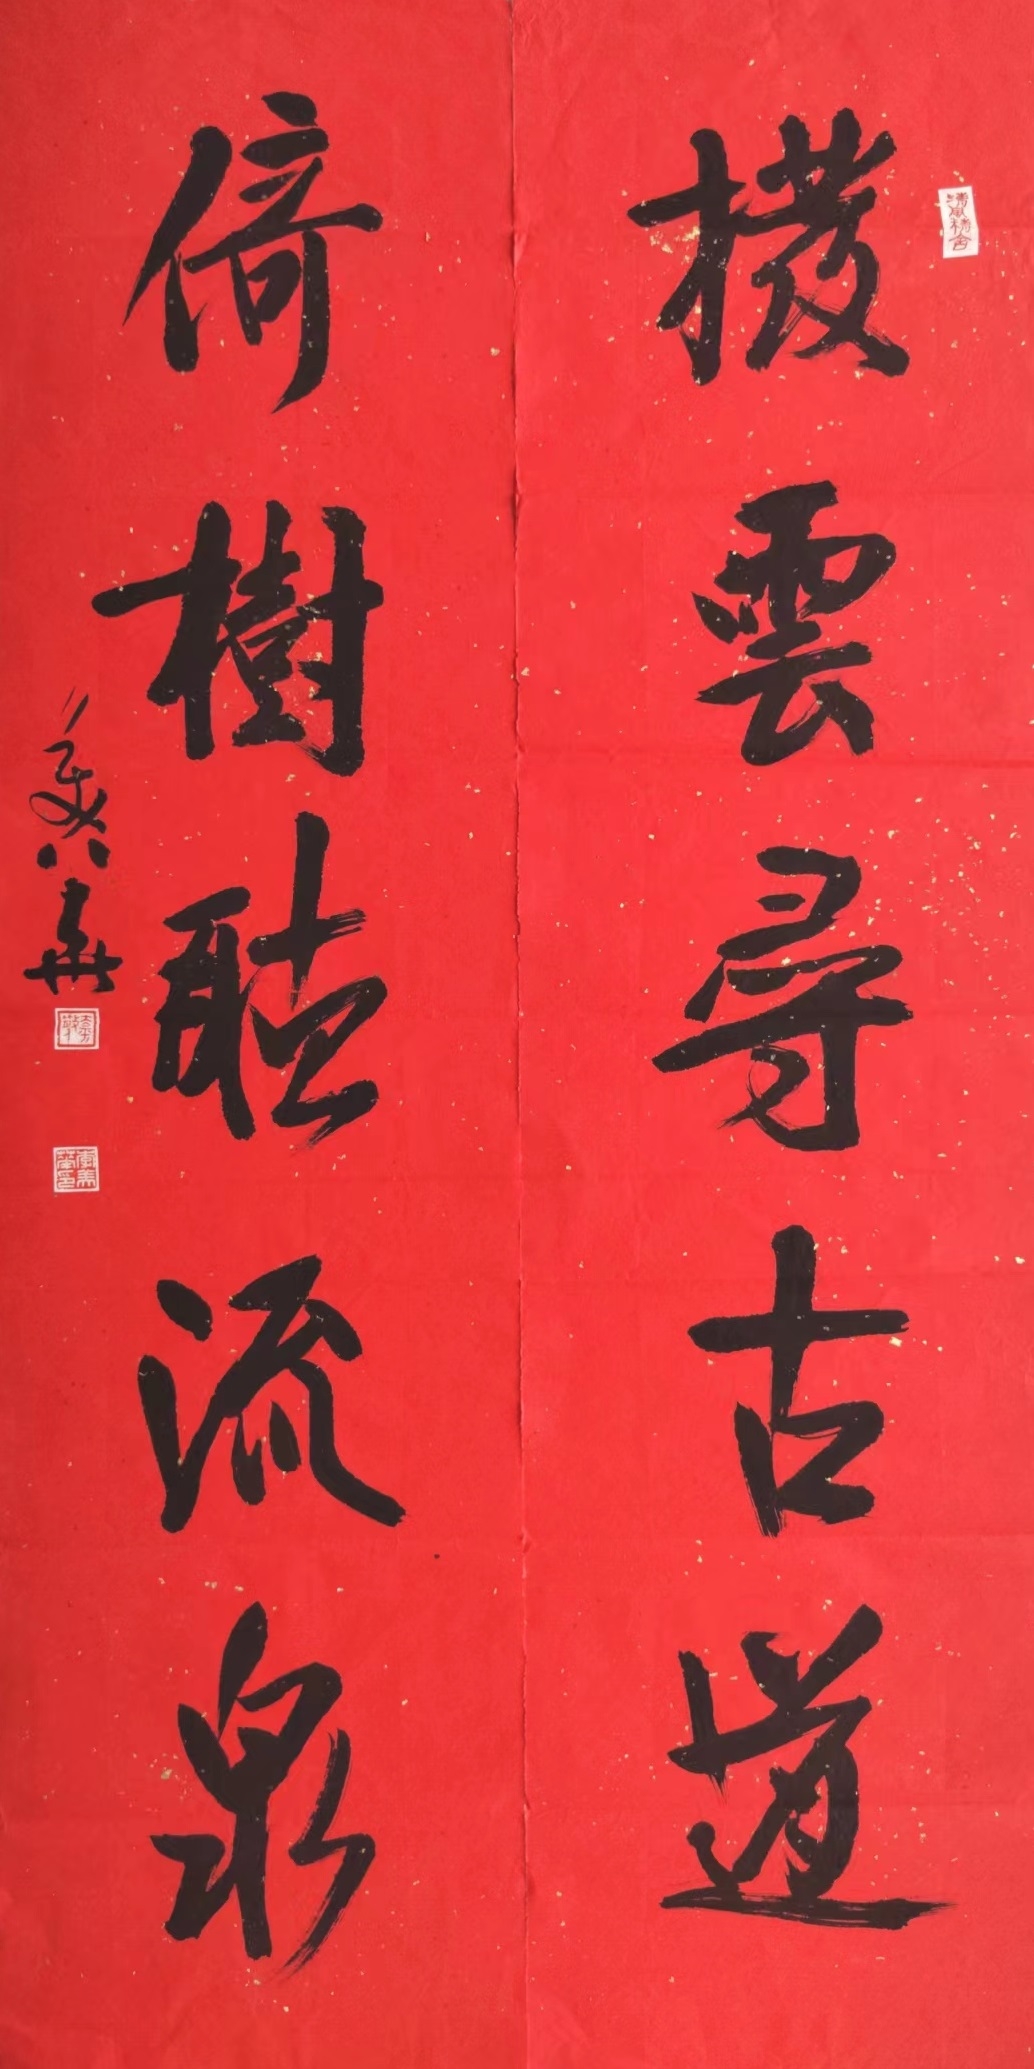 撥雲尋古道
倚樹聽流泉
美華